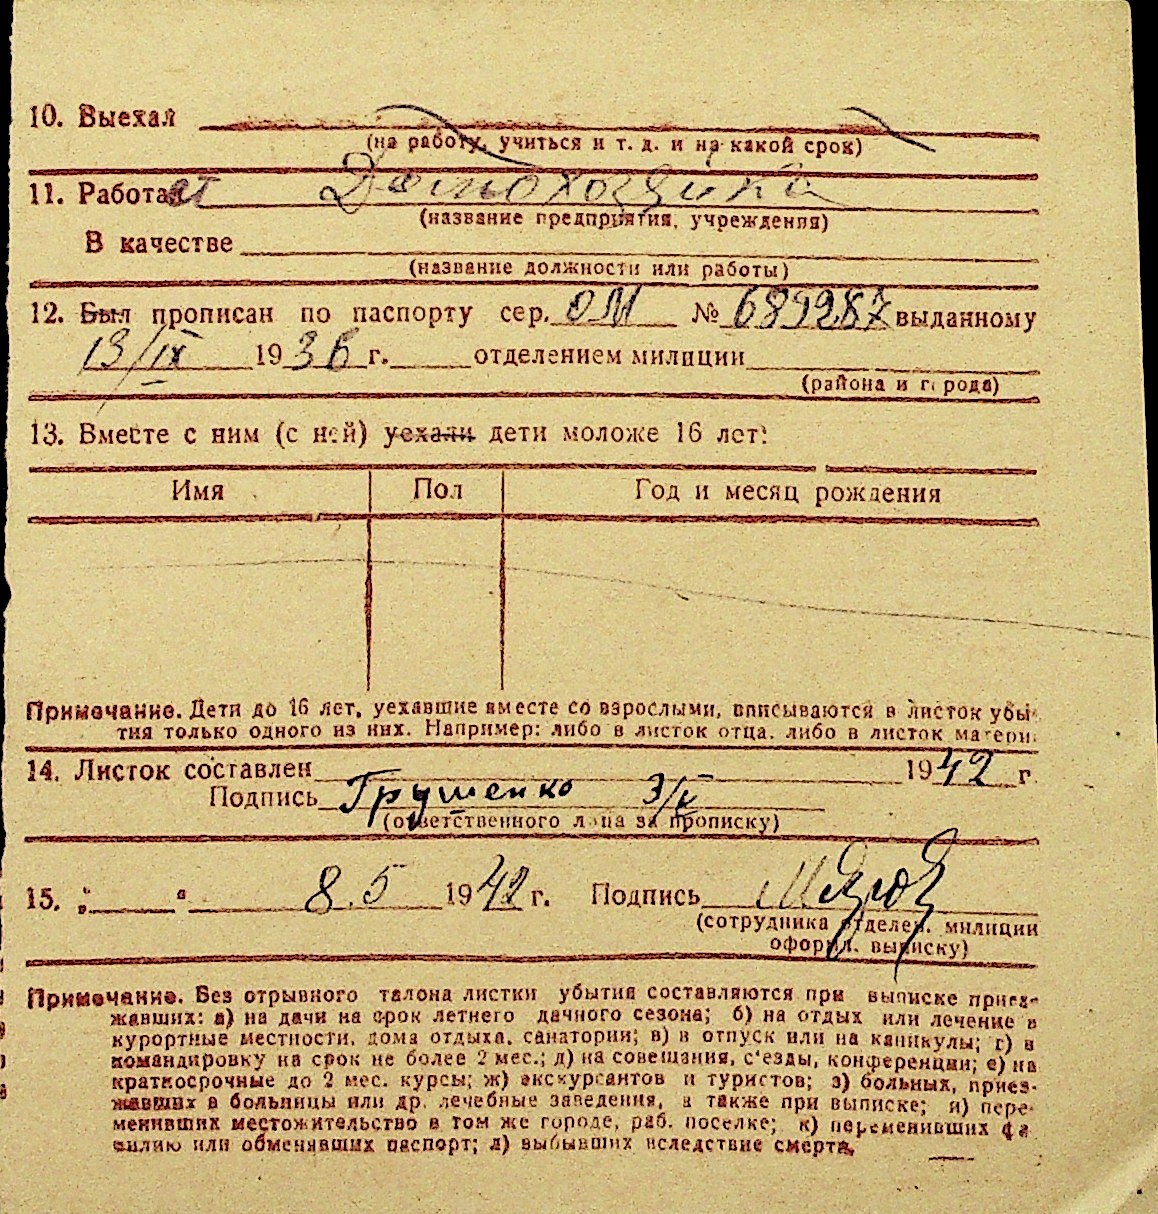 10. Выехал
(на работу, учиться и т. д. и на какой срок)
11. Работает Домохозяйка
(название предприятия, учреждения)
В качестве
(название должности или работы)
12. Был прописан по паспорту сер. ОМ № 689287 выданному
13/IX 1936 г. отделением милиции
(района и города)
13. Вместе с ним (с ней) уехали дети моложе 16 лет:
Имя Пол Год и месяц рождения
Примечание. Дети до 16 лет, уехавшие вместе со взрослыми, вписываются в листок убы-
тия только одного из них. Например: либо в листок отца, либо в листок матери.
14. Листок составлен 1942 г
Подпись Грушенко 3/V
(ответственного лица за прописку)
15. „ “ 8.5 1942 г. Подпись
(сотрудника отделен. милиции
оформл. выписку)
Примечание. Без отрывного талона листки убытия составляются при выписке приез-
жавших: а) на дачи на срок летнего дачного сезона; б) на отдых или лечение в
курортные местности, дома отдыха, санатории; в) в отпуск или на каникулы; г) в
командировку на срок не более 2 мес.; д) на совещания, с'езды, конференции; е) на
краткосрочные до 2 мес. курсы; ж) экскурсантов и туристов; з) больных, приез-
жавших в больницы или др. лечебные заведения, а также при выписке; и) пере-
менивших местожительство в том же городе, раб. поселке; к) переменивших фа
милию или обменявших паспорт; л) выбывших вследствие смерти.